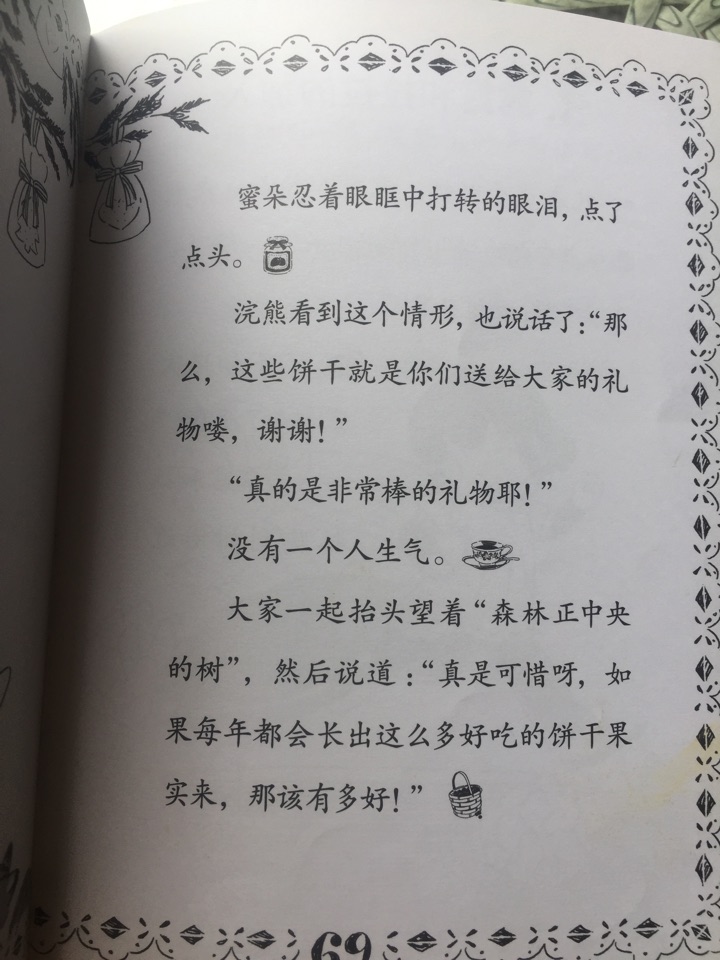 蜜朵忍着眼眶中打转的眼泪，点了
点头。
浣熊看到这个情形，也说话了：“那
么，这些饼干就是你们送给大家的礼
物喽，谢谢！”
“真的是非常棒的礼物耶！”
没有一个人生气。
大家一起抬头望着“森林正中央
的树”，然后说道：“真是可惜呀，如
果每年都会长出这么多好吃的饼干果
实来，那该有多好！”
69